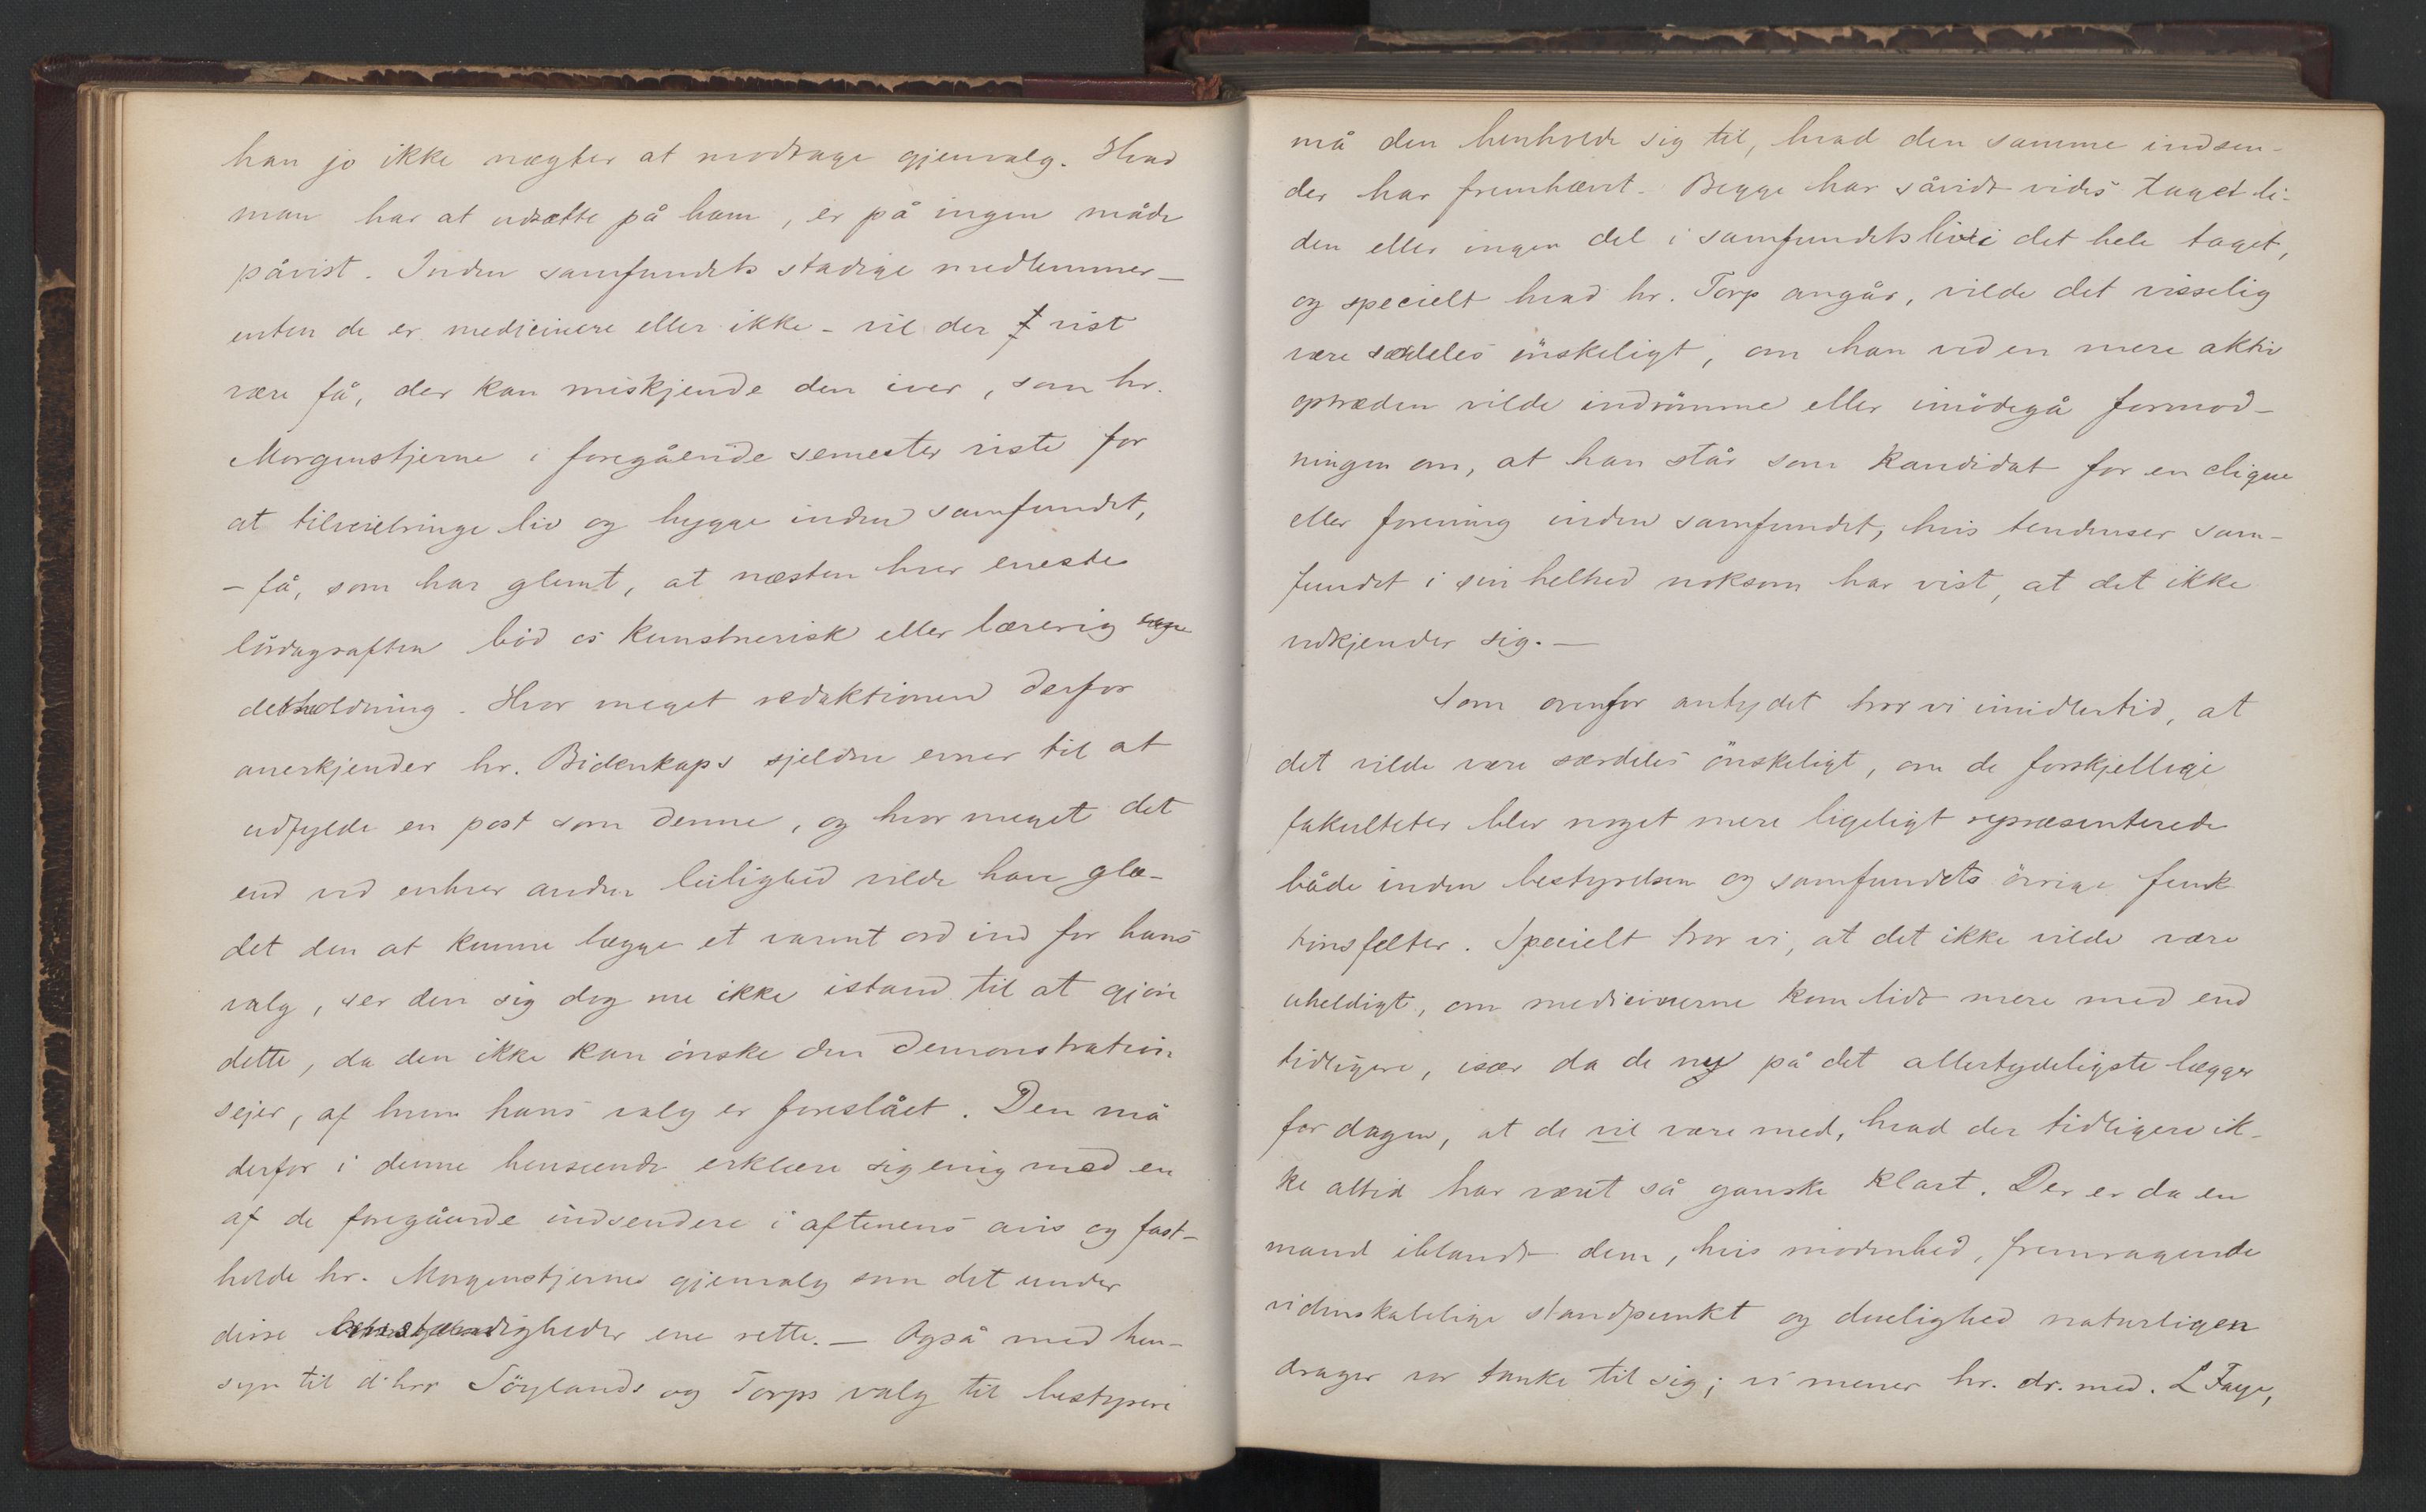 han jo ikke nægter at modtage gjenvalg. Hvad
man har at udsætte på ham, er på ingen måde
påvist. Inden samfundets stadige medlemmer –
enten de er medicinere eller ikke – vil der vist
være få, der kan miskjende den iver, som hr.
Morgenstjerne i foregående semester viste for
at tilveiebringe liv og hygge inden samfundet,
– få, som har glemt, at næsten hver eneste
lördagsaften böd os kunstnerisk eller lærerig
derholdning. Hvor meget redaktionen derfor
anerkjender hr. Bidenkaps sjeldne evner til at
udfylde en post som denne, og hvor meget det
end ved enhver anden leilighed vilde have glæ-
det den at kunne lægge et varmt ord ind for hans
valg, ser den sig dog nu ikke istand til at gjöre
dette, da den ikke kan önske den demonstration
sejer, af hvem hans valg er foreslået. Den må
derfor i denne henseende erklære sig enig med en
af de foregående indsendere i aftenens avis og fast-
holde hr. Morgenstjernes gjenvalg som det under
disse omstændigheder ene rette. – Også med hen-
syn til d'hrr Söylands og Torps valg til bestyrere
må den henholde sig til, hvad den samme indsen-
der har fremhævet. Begge har såvidt vides taget li-
den eller ingen del i samfundets liv i det hele taget,
og specielt hvad hr. Torp angår, vilde det visselig
være særdeles önskeligt, om han ved en mere aktiv
optræden vilde indrömme eller imödegå formod-
ningen om, at han står som kandidat for en clique
eller forening inden samfundet, hvis tendenser sam-
fundet i sin helhed noksom har vist, at det ikke
vedkjender sig. –
Som ovenfor antydet tror vi imidlertid, at
det vilde være særdeles önskeligt, om de forskjellige
fakulteter blev noget mere ligeligt repræsenterede
både inden bestyrelsen og samfundets övrige funk
tionsfelter. Specielt tror vi, at det ikke vilde være
uheldigt, om medicinerne kom lidt mere med end
tidligere, især da de nu på det allertydeligste lægger
for dagen, at de vil være med, hvad der tidligere ik-
ke altid har været så ganske klart. Der er da en
mand iblandt dem, hvis modenhed, fremragende
videnskabelige standpunkt og duelighed naturligen
drager vor tanke til sig; vi mener hr. dr. med. L Faye,